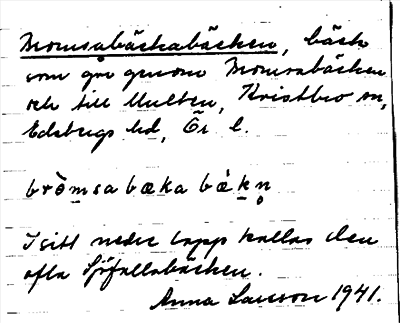 Bromsabäckabäcken, bäck
som går genom Bromsabäcken
och till Multen, Kvistbro sn,
Edsbergs hd, Ör l.
bròmsa bæka bæ̀kn̥
I sitt nedre lopp kallas den
ofta Sjöfallabäcken.
Anna Larsson 1941.